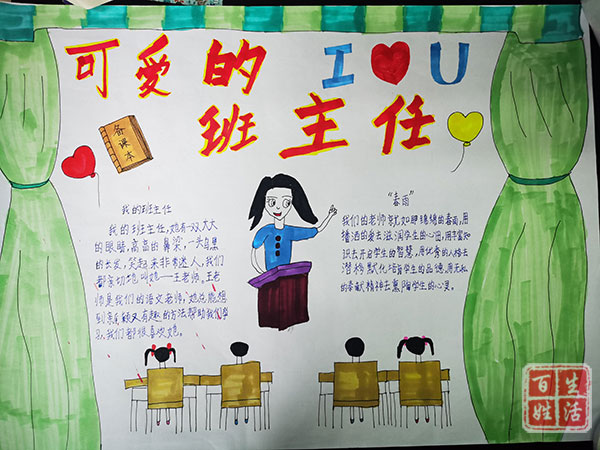 可爱的
I U
班主任
备课本
我的班主任
我的班主任,她有一双大大
的眼睛,高高的鼻梁,一头乌黑
的长发,笑起来非常迷人,我们
都亲切地叫她——王老师。王老
师是我们的语文老师,她总能想
到新颖又有趣的方法帮助我们学
习,我们都很喜欢她。
"春雨"
我们的老师就如那绵绵的春雨,用
播洒的爱去滋润学生的心田,用丰富知
识去开启学生的智慧,用优秀的人格去
潜移默化培育学生的品德,用无私
的奉献精神去熏陶学生的心灵。
百姓生活